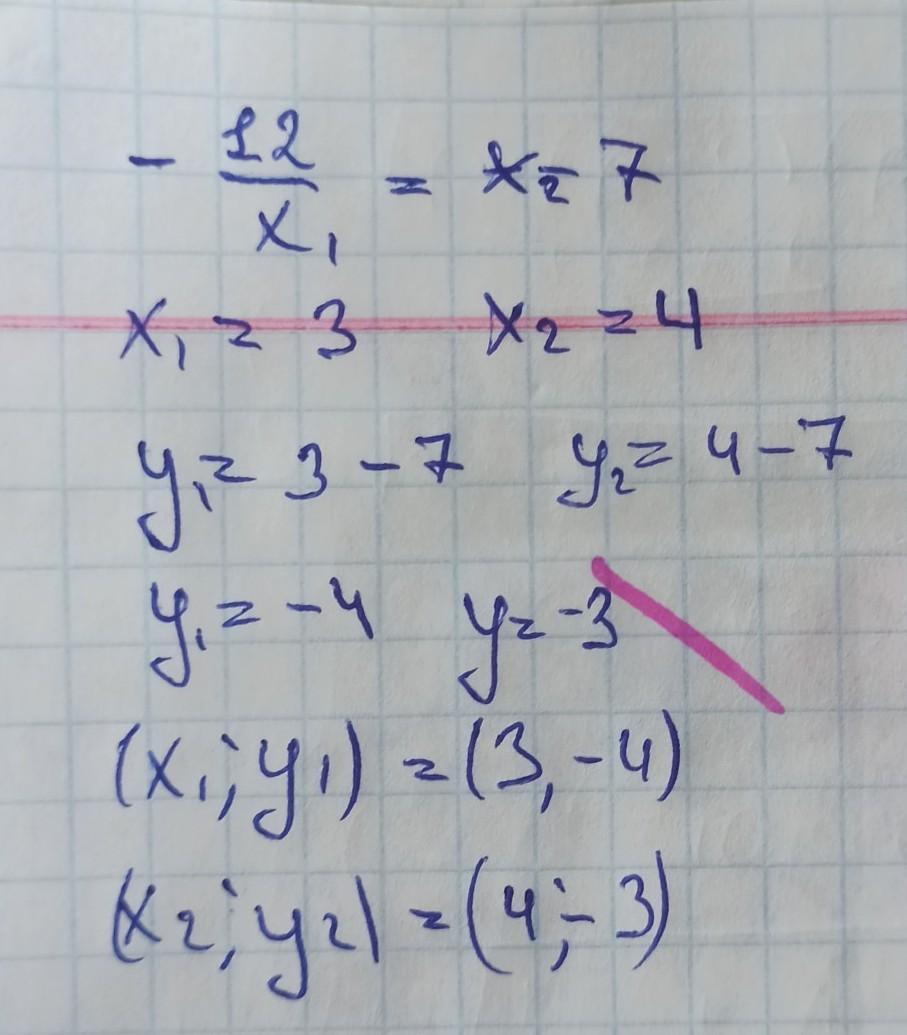 - 12/x₁ = x₂ - 7
x₁ = 3 x₂ = 4
y₁ = 3 - 7 y₂ = 4 - 7
y₁ = -4 y = -3
(x₁; y₁) = (3, -4)
(x₂; y₂) = (4; -3)